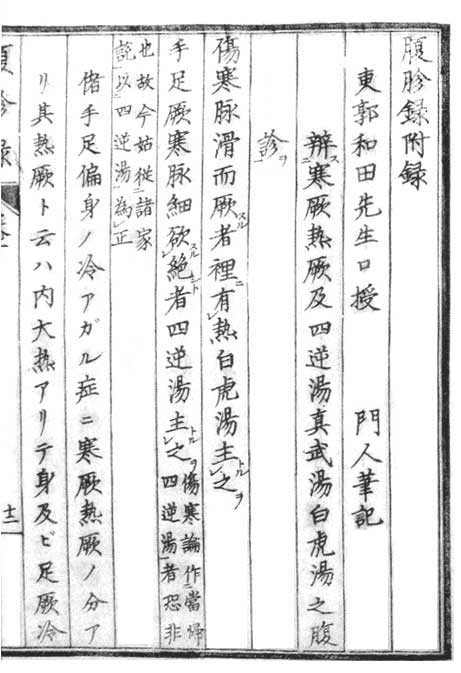 腹胗録附録
東郭和田先生口授　門人筆記
辨ス寒厥熱厥及四逆湯真武湯白虎湯之腹
診ヲ
傷寒脉滑而厥スル者裡ニ有レ熱白虎湯主トルレ之ヲ
手足厥寒脉細欲スルレ絶ント者四逆湯主トルレ之ヲ傷寒論作ニ當帰
四逆湯一者恐非
也故今姑從ニ諸家
説一以ニ四逆湯一為レ正
偖手足偏身ノ冷アガル症ニ寒厥熱厥ノ分ア
リ其熱厥ト云ハ内大熱アリテ身及ビ足厥冷